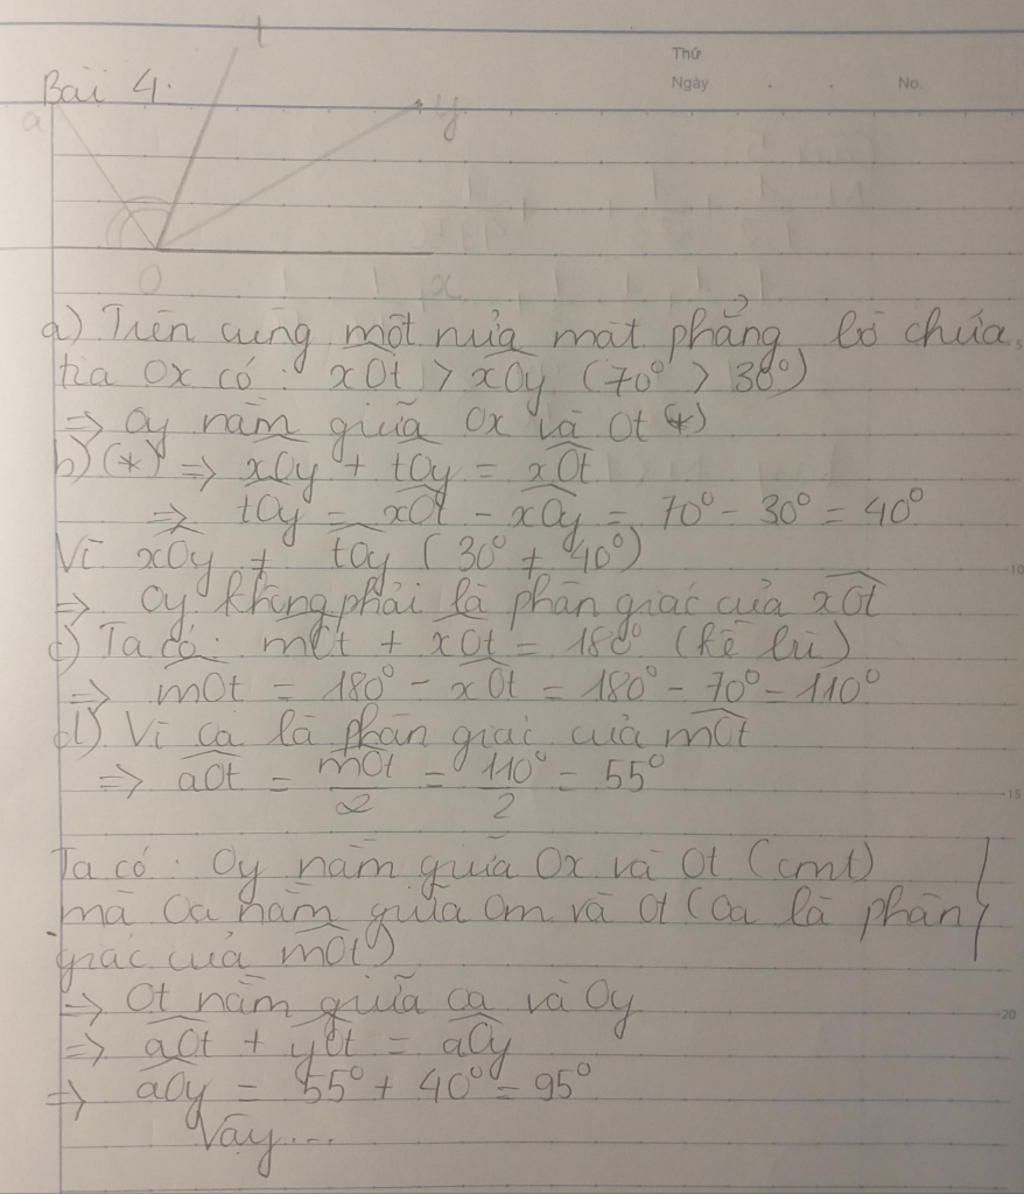 t
Thứ
Ngày . . No.
Bài 4.
a
y
O
x
a) Trên cùng một nửa mặt phẳng bờ chứa
tia Ox có: xOt > xOy (70° > 30°)
=> Oy nằm giữa Ox và Ot (*)
b) (*) => xOy + tOy = xOt
=> tOy = xOt - xOy = 70° - 30° = 40°
Vì xOy ≠ tOy (30° ≠ 40°)
=> Oy không phải là phân giác của xOt
c) Ta có: mOt + xOt = 180° (kề bù)
=> mOt = 180° - xOt = 180° - 70° = 110°
d) Vì Oa là phân giác của mOt
=> aOt = mOt/2 = 110°/2 = 55°
Ta có: Oy nằm giữa Ox và Ot (cmt)
mà Oa nằm giữa Om và Ot (Oa là phân
giác của mOt)
=> Ot nằm giữa Oa và Oy
=> aOt + yOt = aOy
=> aOy = 55° + 40° = 95°
Vậy...
10
15
20